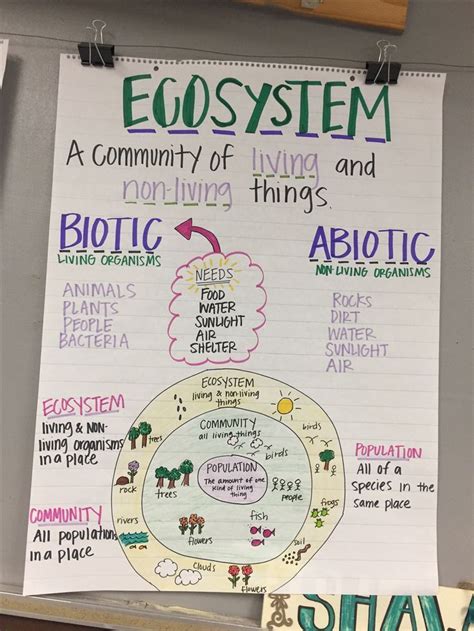 ECOSYSTEM
A COMMUNITY OF living and
non-living things.
BIOTIC
LIVING ORGANISMS
ANIMALS
PLANTS
PEOPLE
BACTERIA
NEEDS
FOOD
WATER
SUNLIGHT
AIR
SHELTER
ABIOTIC
NON-LIVING ORGANISMS
ROCKS
DIRT
WATER
SUNLIGHT
AIR
ECOSYSTEM
living & NON-
living organisms
in a place
COMMUNITY
All populations
in a place
ECOSYSTEM
living & non-living
things
COMMUNITY
all living things
POPULATION
The amount of one
kind of living
thing
trees
birds
birds
rock
trees
people
frogs
rivers
fish
flowers
soil
clouds
flowers
POPULATION
All of a
species in the
same place
SHA